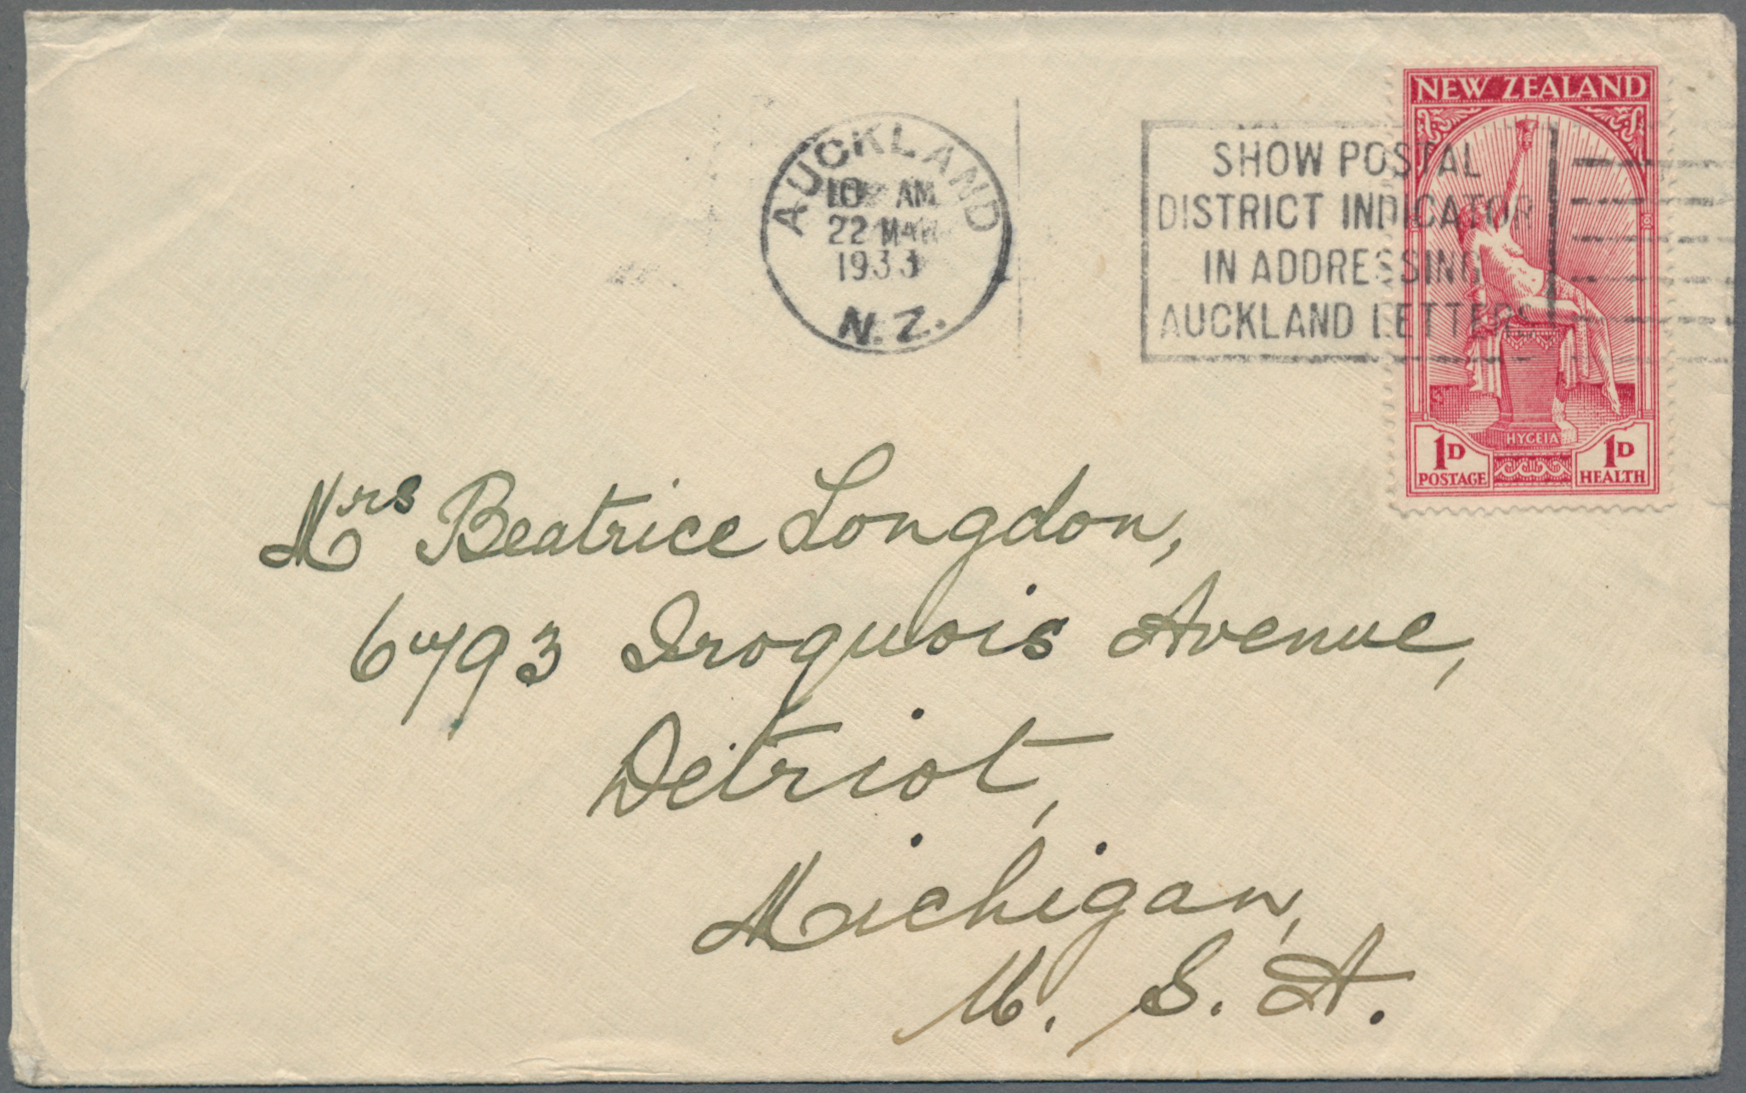 AUCKLAND
10 AM
22 MAR
1933
N.Z.
SHOW POSTAL
DISTRICT INDICATOR
IN ADDRESSING
AUCKLAND LETTERS
NEW ZEALAND
HYGEIA
1D 1D
POSTAGE HEALTH
Mrs Beatrice Longdon,
6793 Iroquois Avenue,
Detriot,
Michigan,
U. S. A.